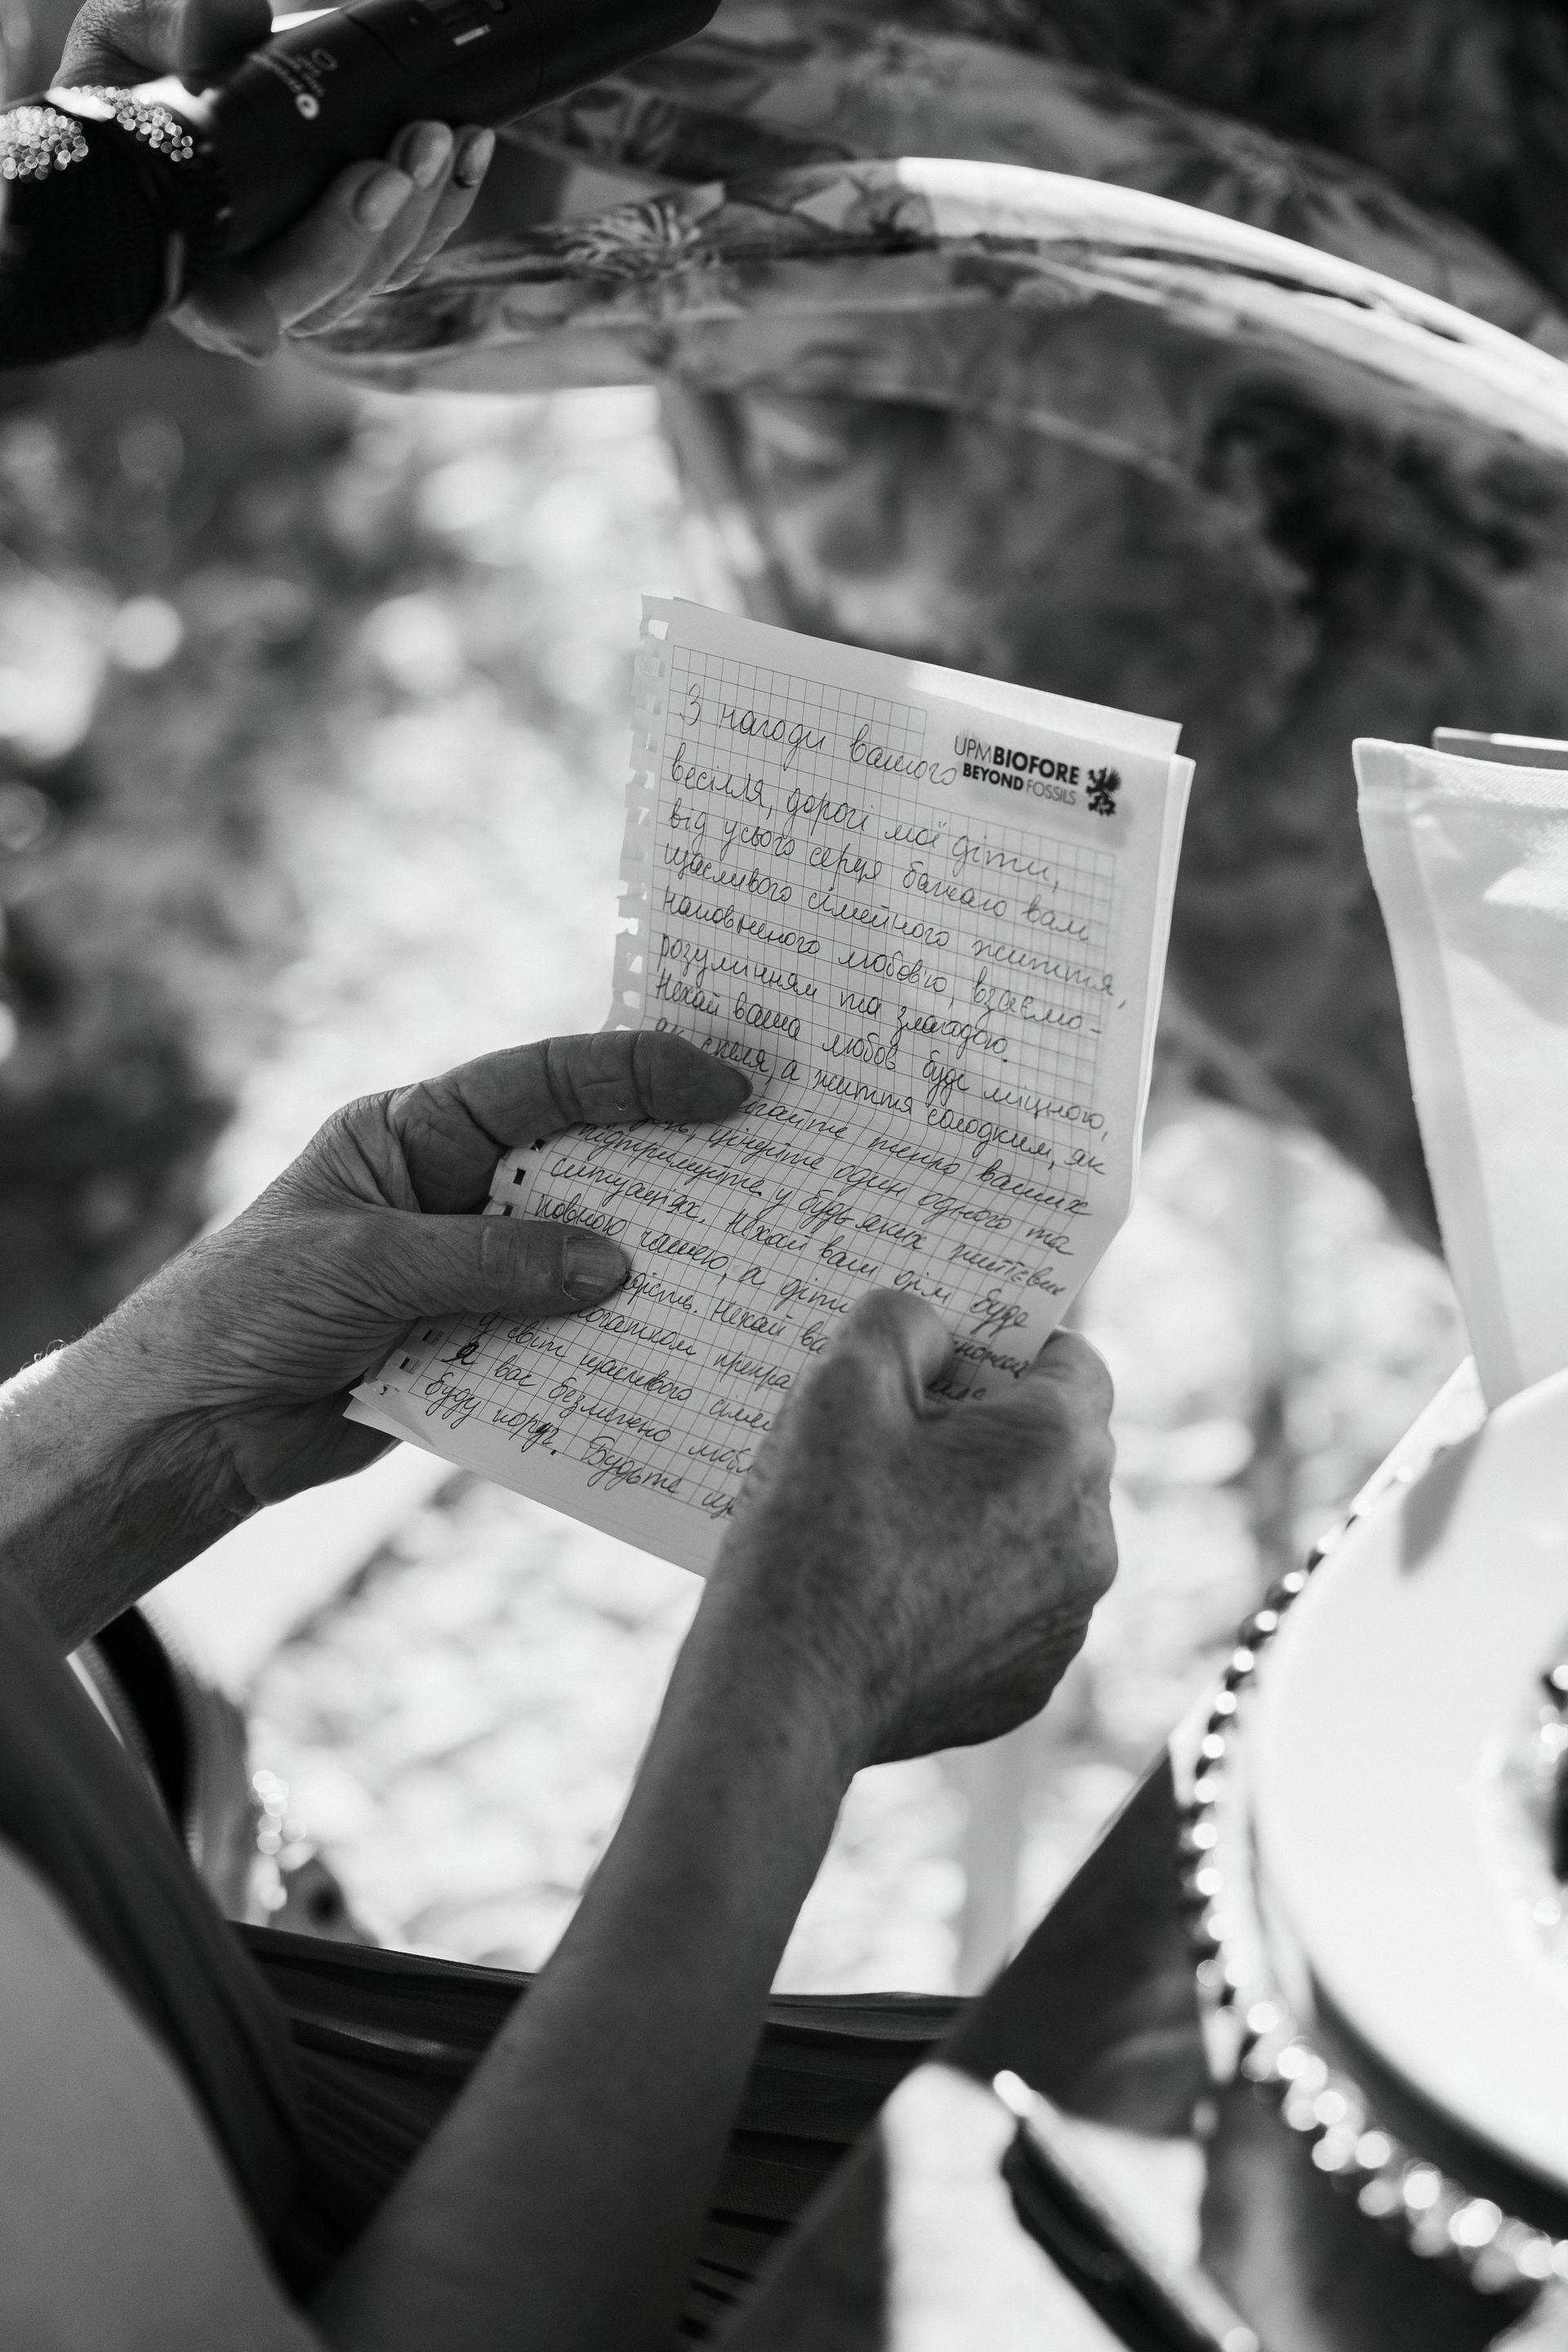 З нагоди вашого
UPMBIOFORE
BEYOND FOSSILS
весілля, дорогі мої діти,
від усього серця бажаю вам
щасливого сімейного життя,
наповненого любов'ю, взаємо-
розумінням та злагодою.
Нехай ваша любов буде міцною,
як скеля, а життя солодким, як
тепло ваших
цінуйте один одного та
підтримуйте у будь-яких життєвих
ситуаціях. Нехай ваш дім буде
повною чашею, а діти
Нехай
початком
у світ щасливого
Я вас безмежно
буду поруч. Будьте